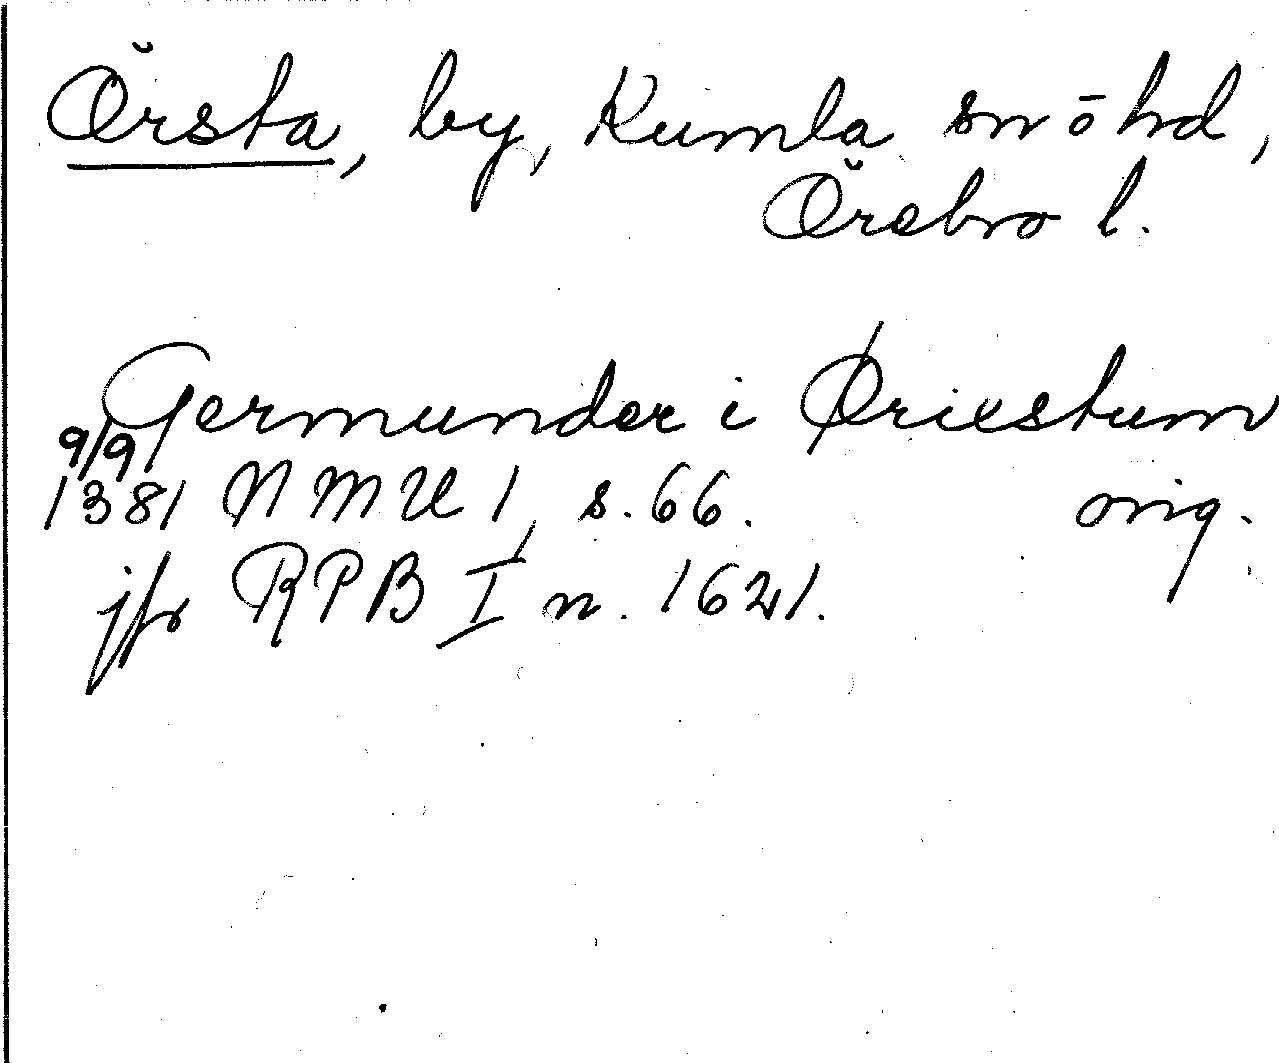 Örsta, by, Kumla sn ō hd,
Örebro l.
Germunder i Ørixstum
9/9
1381 NMU 1, s. 66. orig.
jfr RPB I n. 1621.